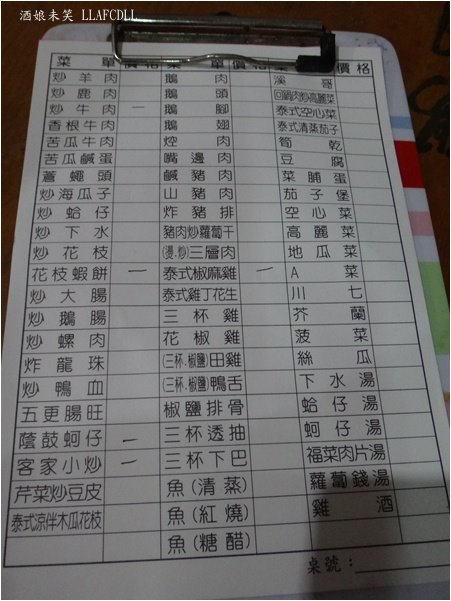 酒娘未笑 LLAFCDLL
菜單 價格 菜單 價格 菜 價格
炒羊肉 鵝肉 溪哥
炒鹿肉 鵝頭 回鍋肉炒高麗菜
炒牛肉 一 鵝腳 泰式空心菜
香根牛肉 鵝翅 泰式清蒸茄子
苦瓜牛肉 焢肉 筍乾
苦瓜鹹蛋 嘴邊肉 豆腐
蒼蠅頭 鹹豬肉 菜脯蛋
炒海瓜子 山豬肉 茄子堡
炒蛤仔 炸豬排 空心菜
炒下水 豬肉炒蘿蔔干 高麗菜
炒花枝 (燙.炒)三層肉 地瓜菜
花枝蝦餅 一 泰式椒麻雞 一 A菜
炒大腸 泰式雞丁花生 川七
炒鵝腸 三杯雞 芥蘭
炒螺肉 花椒雞 菠菜
炸龍珠 (三杯.椒鹽)田雞 絲瓜
炒鴨血 (三杯.椒鹽)鴨舌 下水湯
五更腸旺 椒鹽排骨 蛤仔湯
蔭鼓蚵仔 一 三杯透抽 蚵仔湯
客家小炒 一 三杯下巴 福菜肉片湯
芹菜炒豆皮 魚(清蒸) 蘿蔔錢湯
泰式涼伴木瓜花枝 魚(紅燒) 雞酒
魚(糖醋)
桌號：